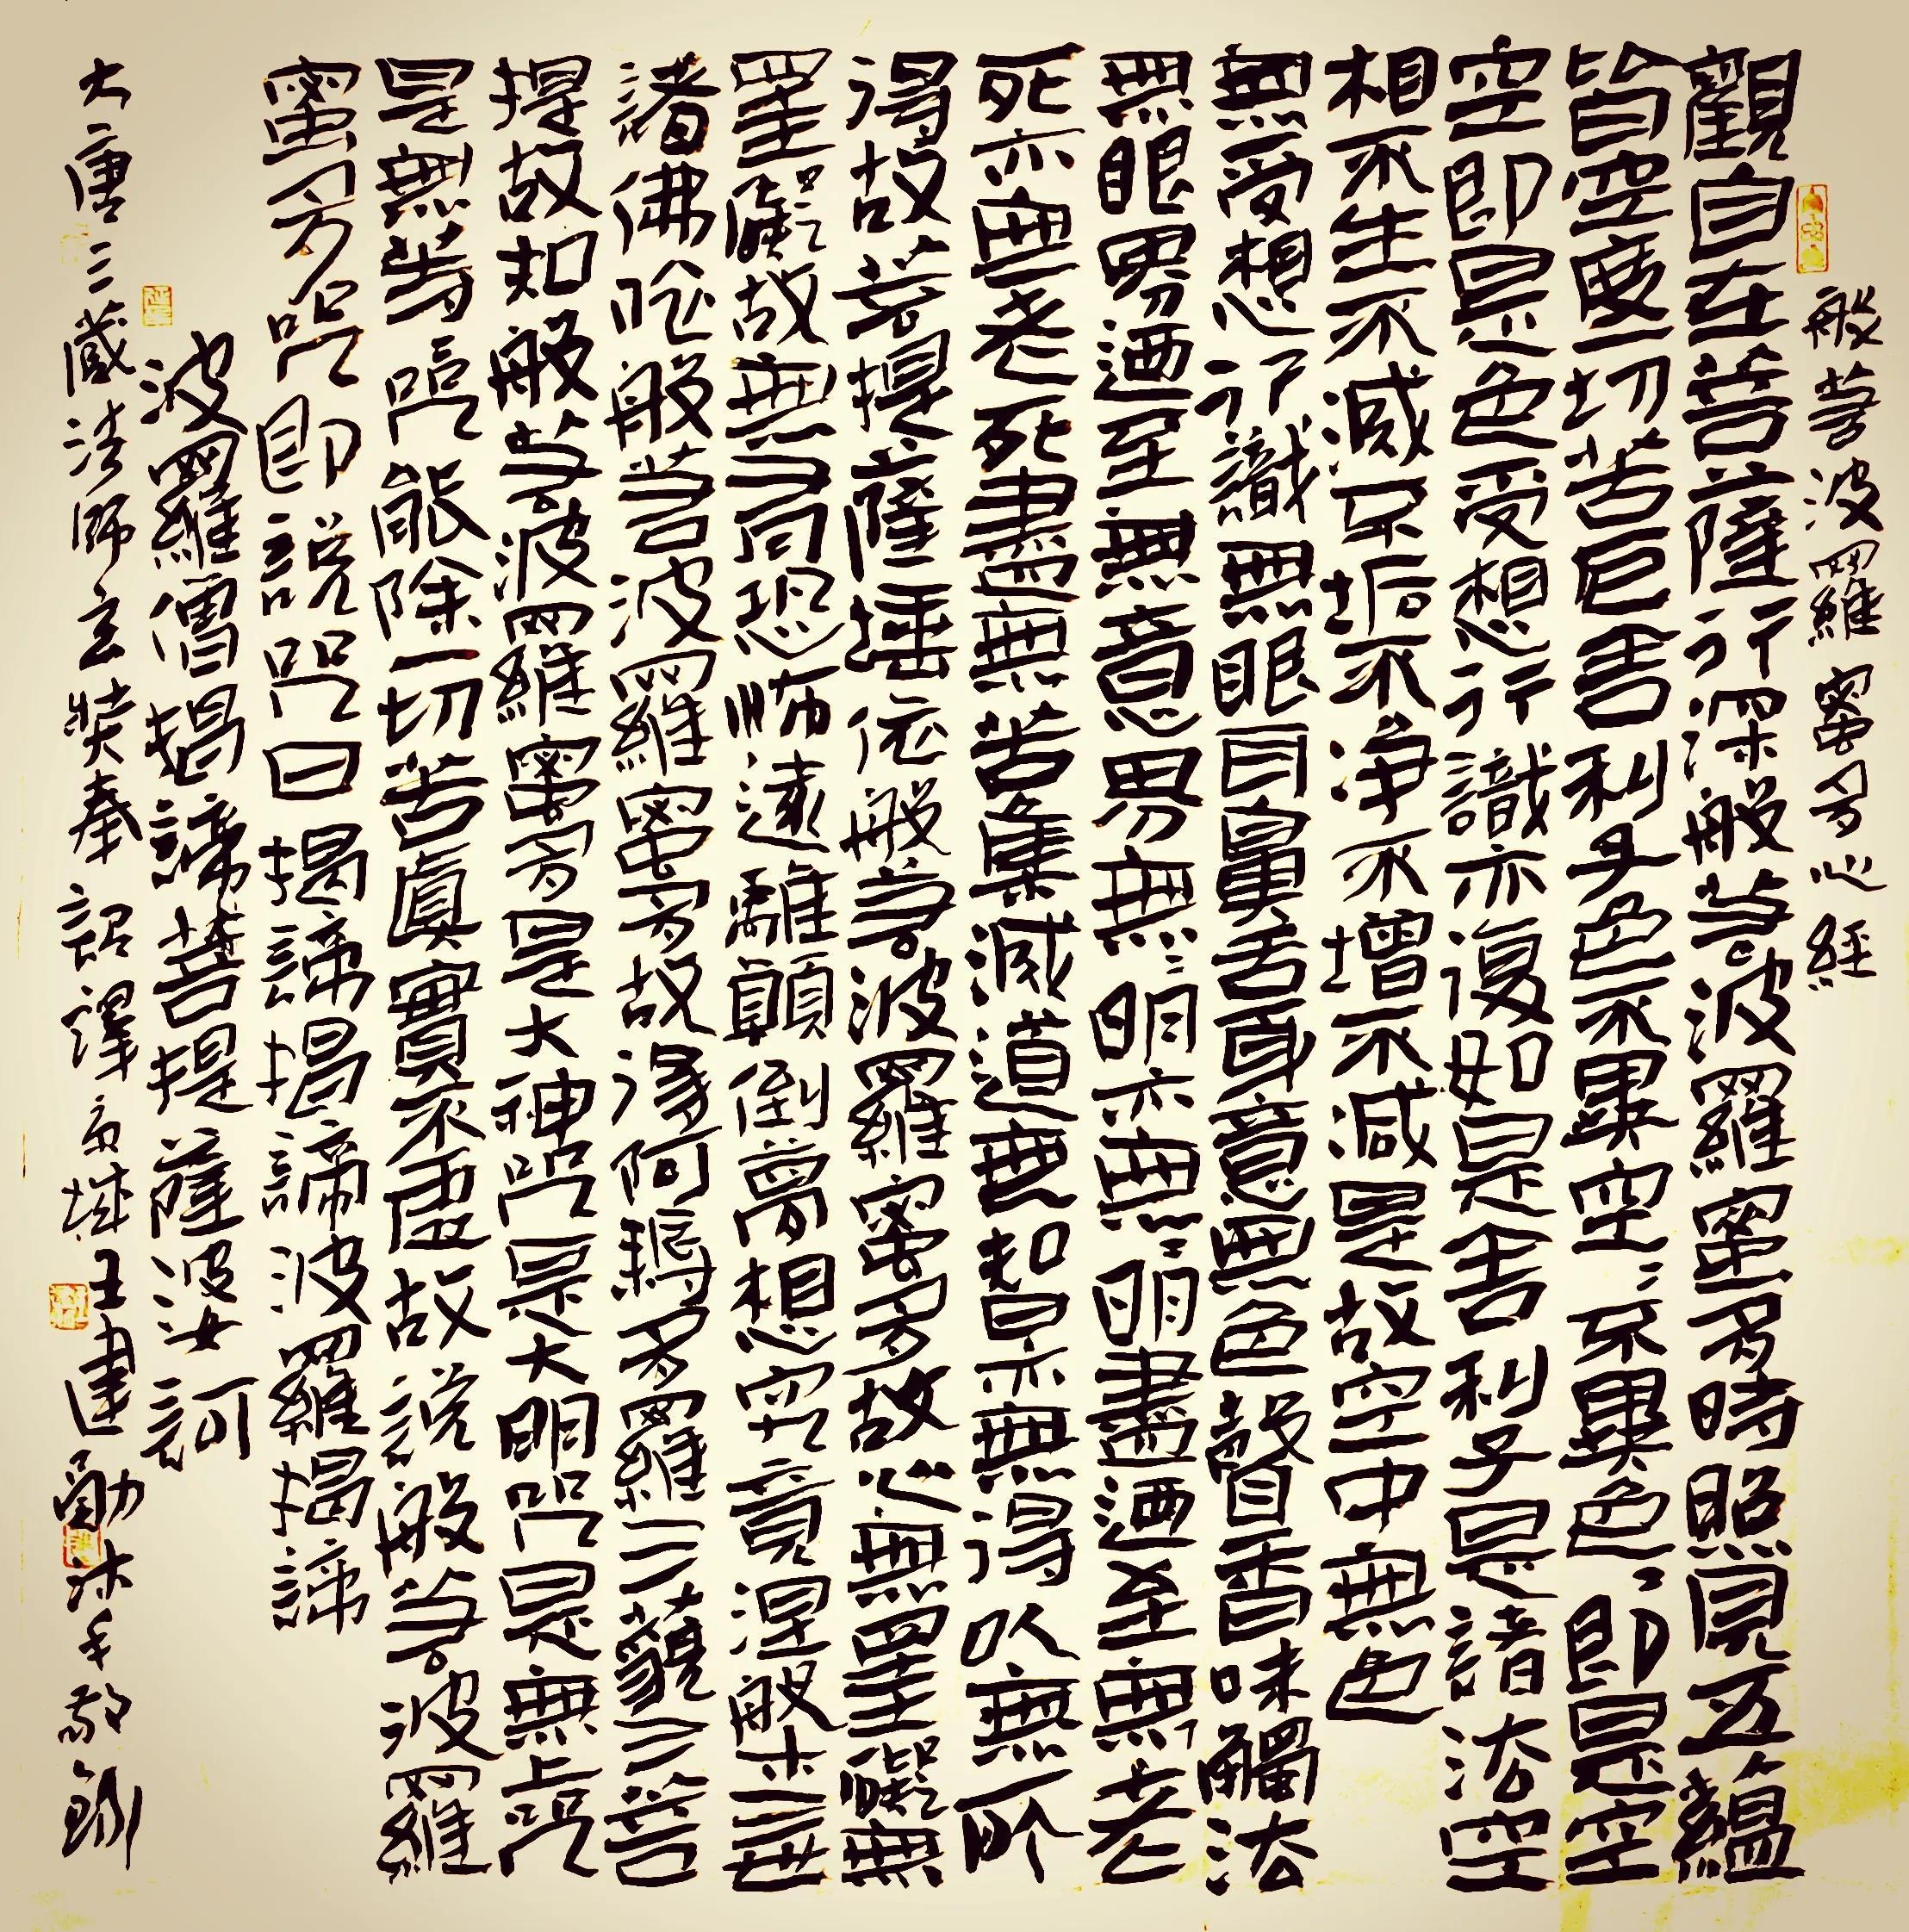 般若波羅蜜多心經
觀自在菩薩行深般若波羅蜜多時照見五蘊
皆空度一切苦厄舍利子色不異空〻不異色〻即是空
空即是色受想行識亦復如是舍利子是諸法空
相不生不滅不垢不淨不增不減是故空中無色
無受想行識無眼耳鼻舌身意無色聲香味觸法
無眼界迺至無意界無〻明亦無〻明盡迺至無老
死亦無老死盡無苦集滅道無智亦無得以無所
得故菩提薩埵依般若波羅蜜多故心無罣礙無
罣礙故無有恐怖遠離顛倒夢想究竟涅槃三世
諸佛依般若波羅蜜多故得阿耨多羅三藐三菩
提故知般若波羅蜜多是大神咒是大明咒是無上咒
是無等咒能除一切苦真實不虛故說般若波羅
蜜多咒即說咒曰揭諦揭諦波羅揭諦
波羅僧揭諦菩提薩婆訶
大唐三藏法師玄奘奉詔譯京城王建勛沐手敬錄